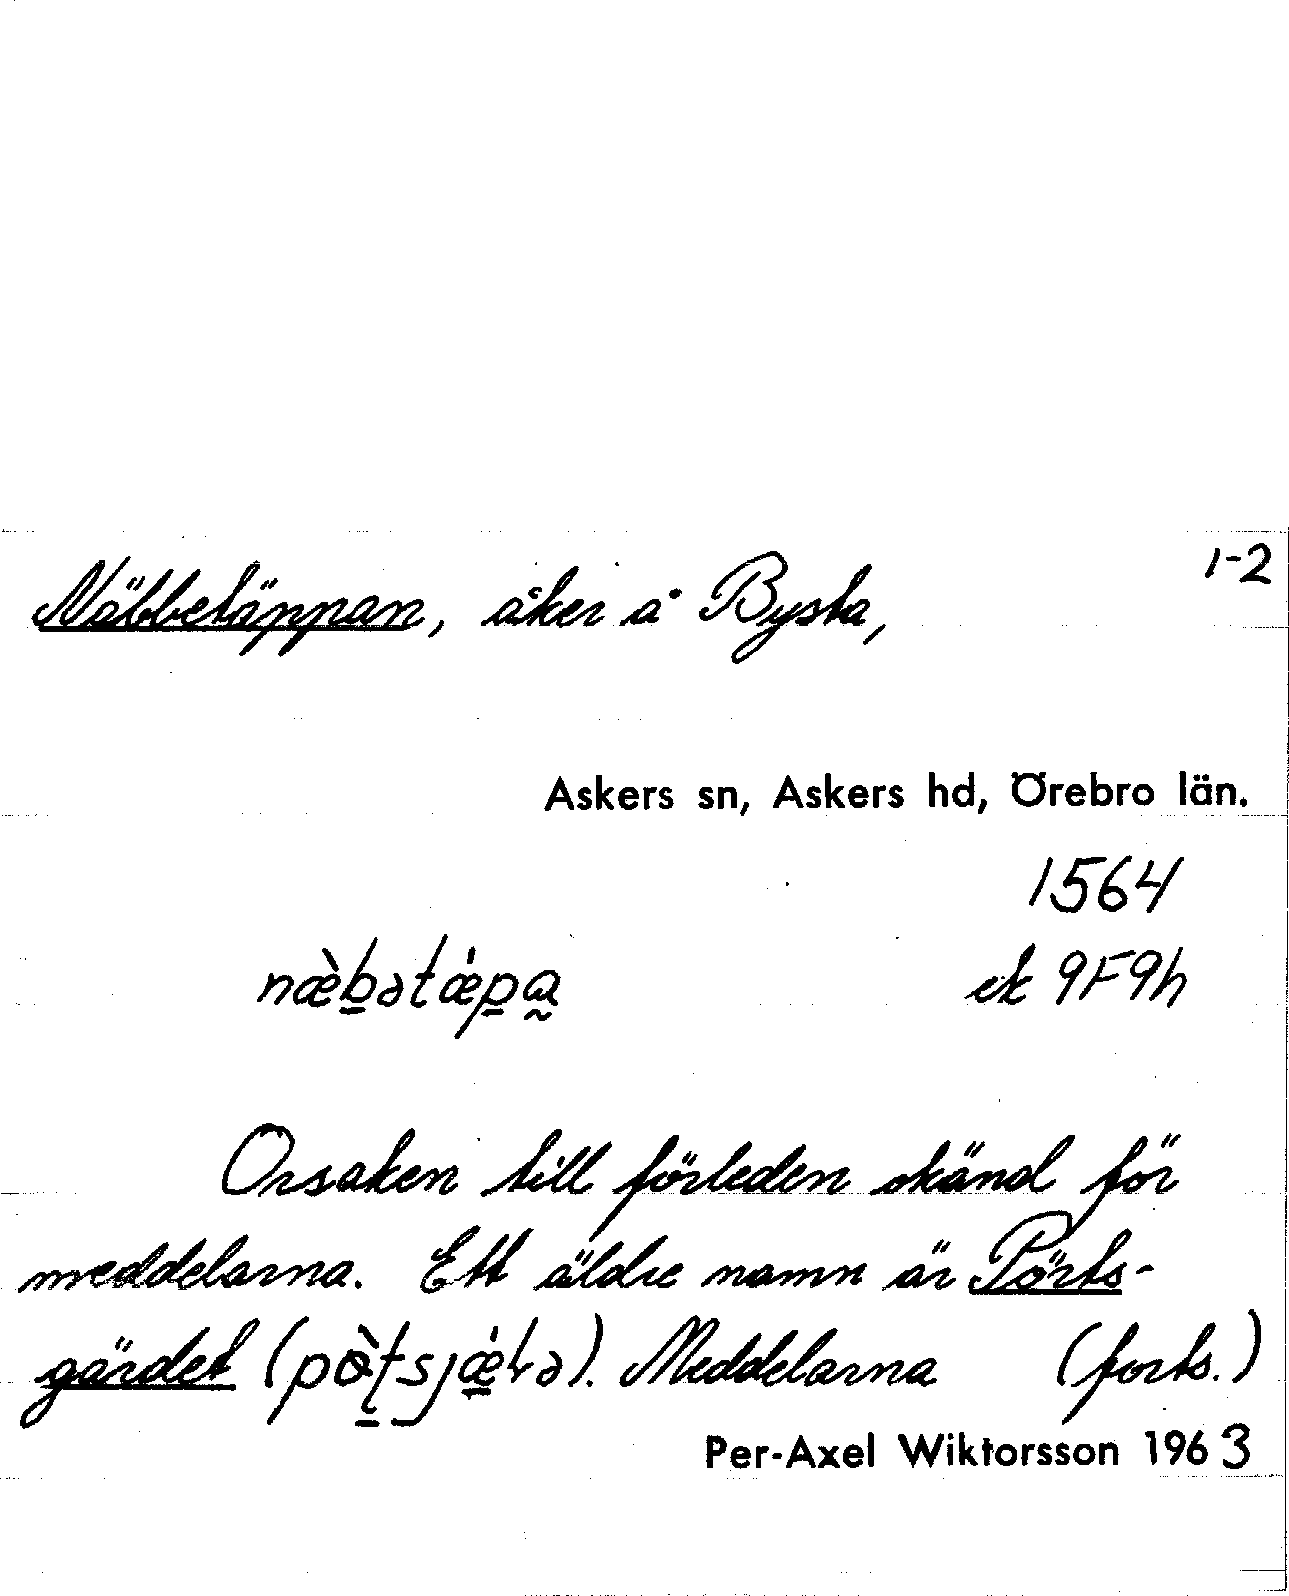 1-2
Näbbetäppan, åker å Bysta,
Askers sn, Askers hd, Örebro län.
1564
næ̀b̲ətǽp̲a̰ ek 9F9h
Orsaken till förleden okänd för
meddelarna. Ett äldre namn är Pörts-
gärdet (). Meddelarna (forts.)
Per-Axel Wiktorsson 1963